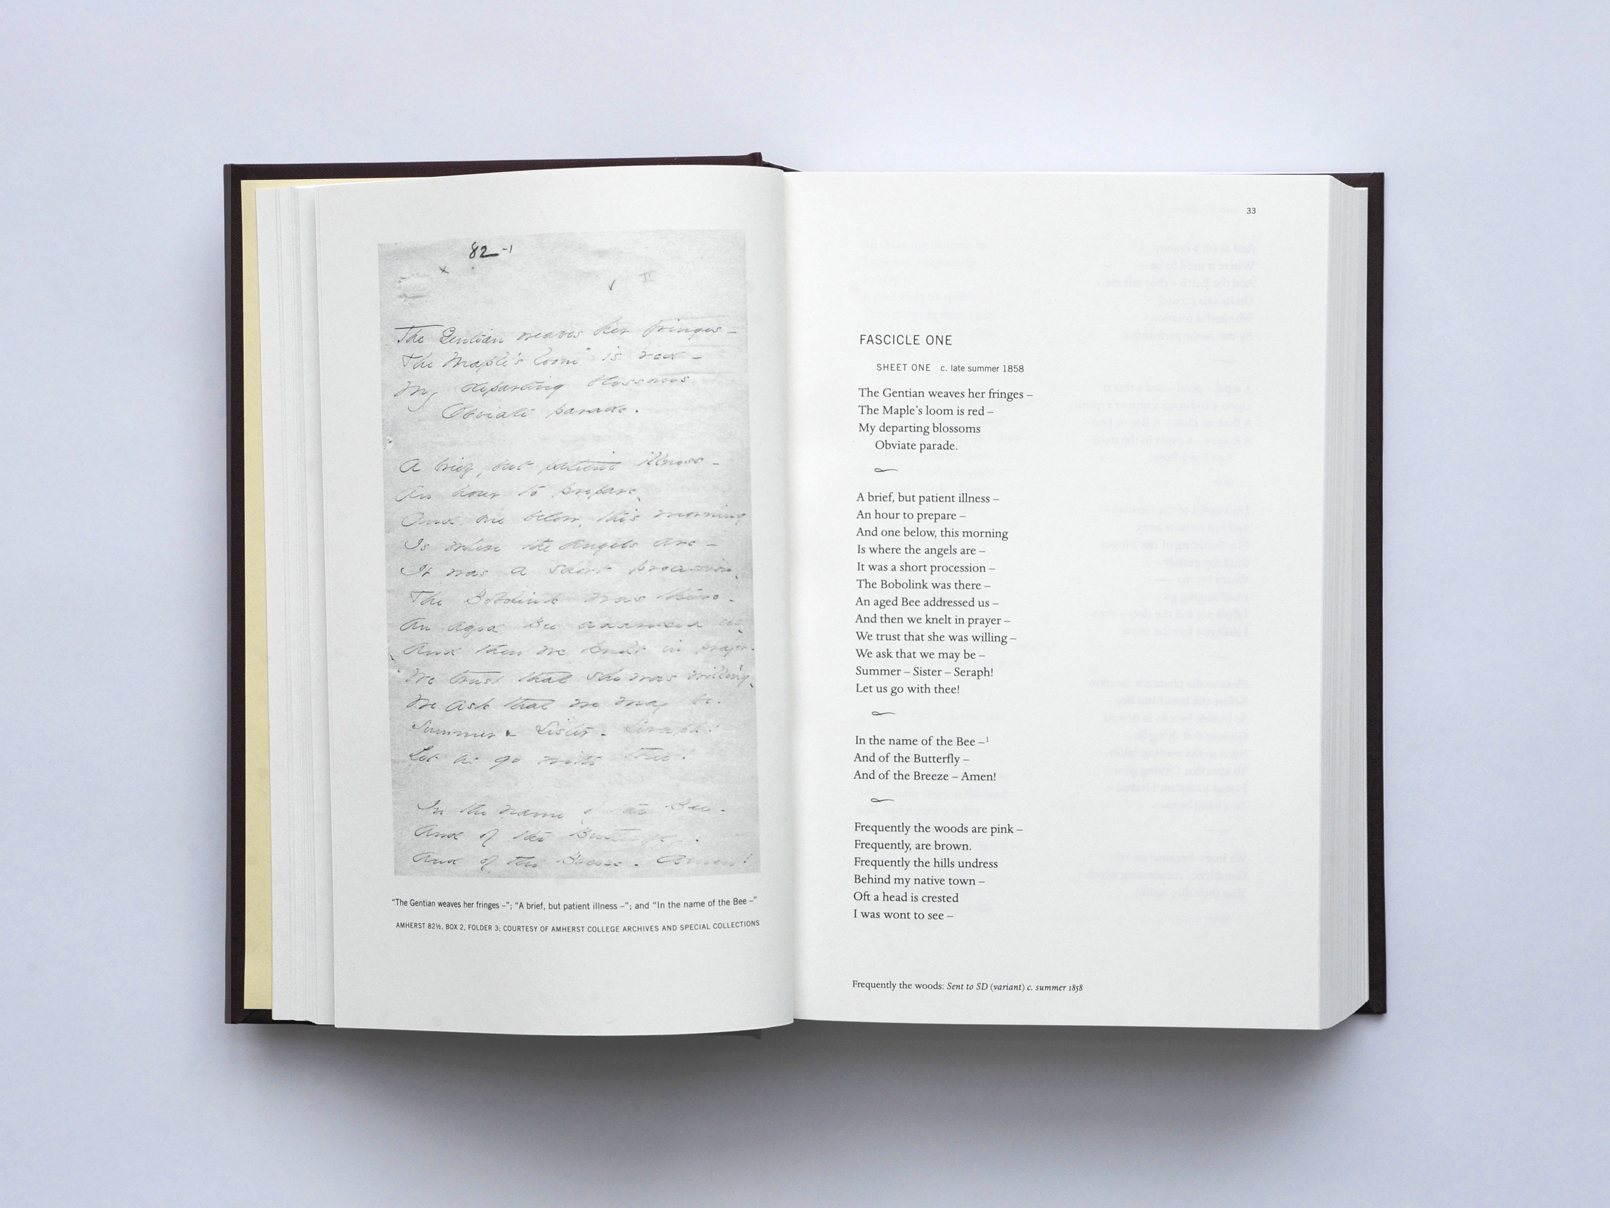 82-1
The Gentian weaves her fringes –
The Maple's loom is red –
My departing blossoms
Obviate parade.
A brief, but patient illness –
An hour to prepare,
And one below, this morning
Is where the Angels are –
It was a short procession,
The Bobolink was there –
An aged Bee addressed us,
And then we knelt in prayer –
We trust that she was willing,
We ask that we may be.
Summer – Sister – Seraph!
Let us go with thee!
In the name of the Bee –
And of the Butterfly –
And of the Breeze – Amen!
"The Gentian weaves her fringes –"; "A brief, but patient illness –"; and "In the name of the Bee –"
AMHERST 82½, BOX 2, FOLDER 3; COURTESY OF AMHERST COLLEGE ARCHIVES AND SPECIAL COLLECTIONS
33
FASCICLE ONE
SHEET ONE c. late summer 1858
The Gentian weaves her fringes –
The Maple's loom is red –
My departing blossoms
Obviate parade.
A brief, but patient illness –
An hour to prepare –
And one below, this morning
Is where the angels are –
It was a short procession –
The Bobolink was there –
An aged Bee addressed us –
And then we knelt in prayer –
We trust that she was willing –
We ask that we may be –
Summer – Sister – Seraph!
Let us go with thee!
In the name of the Bee –¹
And of the Butterfly –
And of the Breeze – Amen!
Frequently the woods are pink –
Frequently, are brown.
Frequently the hills undress
Behind my native town –
Oft a head is crested
I was wont to see –
Frequently the woods: Sent to SD (variant) c. summer 1858